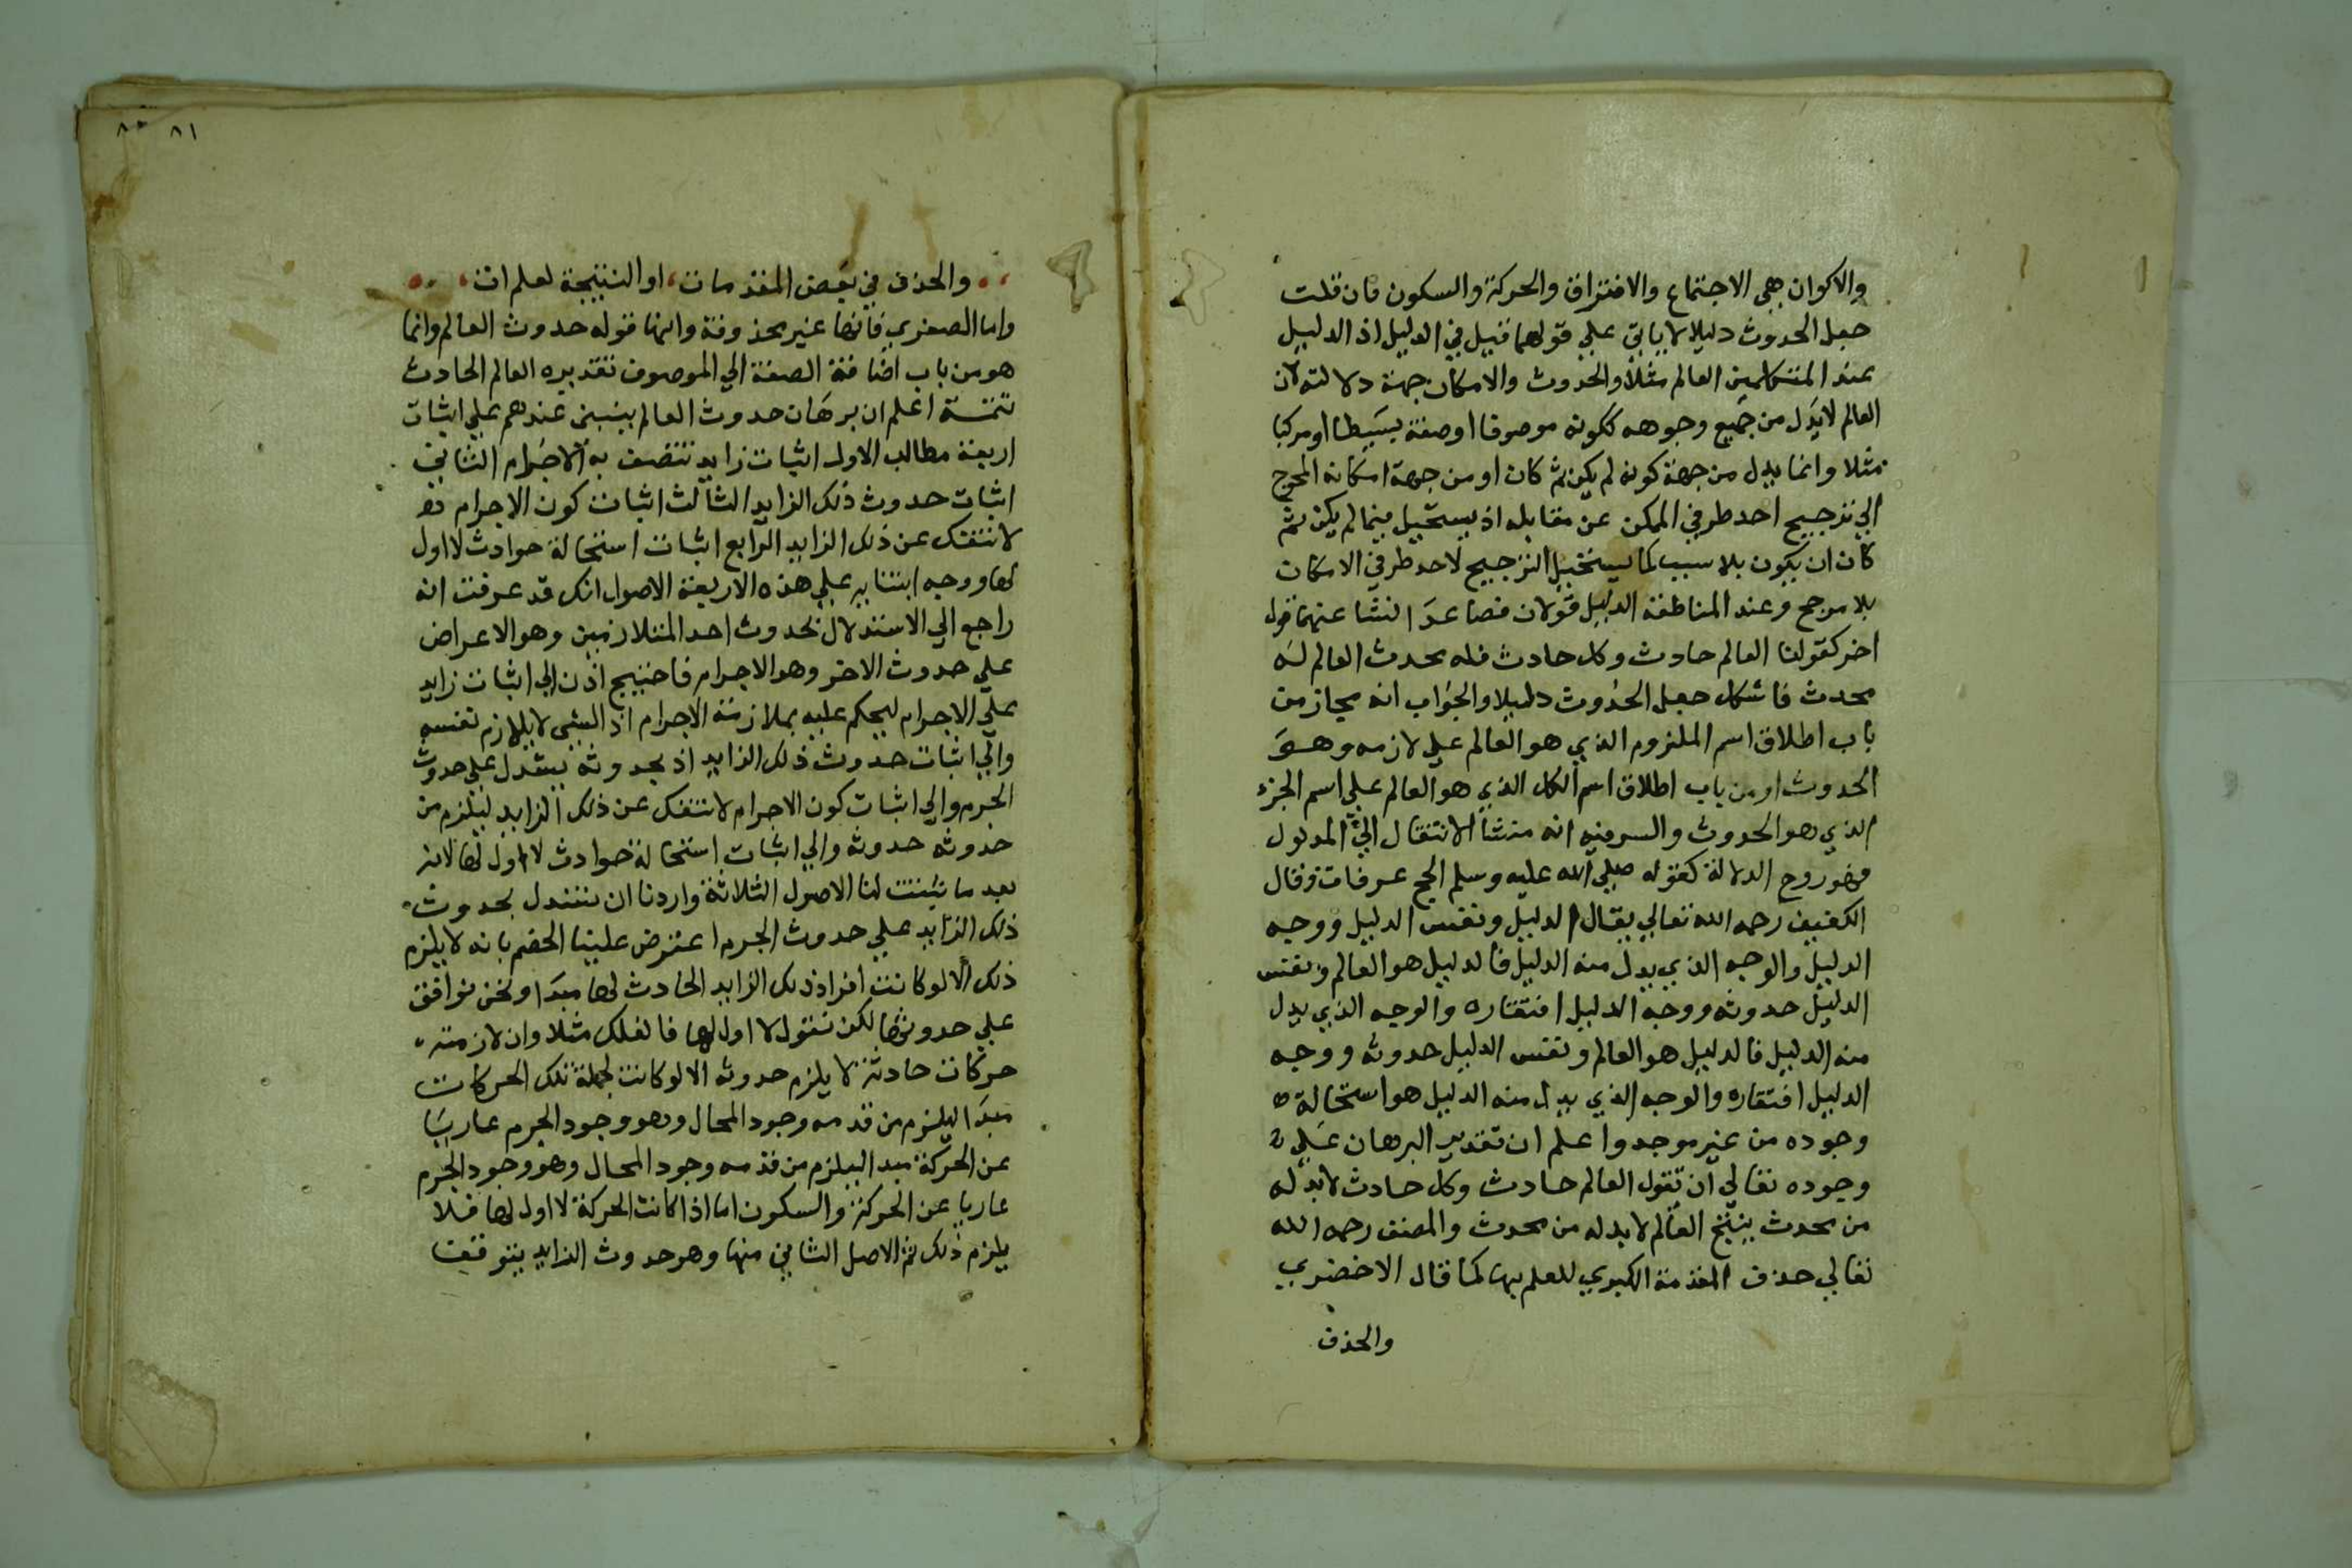 والاكوان هي الاجتماع والافتراق والحركة والسكون فان قلت
جعل الحدوث دليلا لا ياتي علي قولهما قيل في الدليل اذ الدليل
عند المتكلمين العالم مثلا والحدوث والامكان جهة دلالته لان
العالم لا يدل من جميع وجوهه ككونه موصوفا او صفة بسيطا او مركبا
مثلا وانما يدل من جهة كونه لم يكن ثم كان او من جهة امكانه المحوج
الي ترجيح احد طرفي الممكن عن مقابله اذ يستحيل فيما لم يكن ثم
كان ان يكون بلا سبب كما يستحيل الترجيح لاحد طرفي الامكان
بلا مرجح وعند المناطقة الدليل قولان فصاعدا انشا عنهما قول
اخر كقولنا العالم حادث وكل حادث فله محدث العالم له
محدث فاشكل جعل الحدوث دليلا والجواب انه مجاز من
باب اطلاق اسم الملزوم الذي هو العالم علي لازمه وهو
الحدوث او من باب اطلاق اسم الكل الذي هو العالم علي اسم الجزء
الذي هو الحدوث والسر فيه انه منشأ الانتقال الي المدلول
فهو روح الدلالة كقوله صلي الله عليه وسلم الحج عرفات وقال
الكفيف رحمه الله تعالي يقال الدليل ونفس الدليل ووجه
الدليل والوجه الذي يدل منه الدليل فالدليل هو العالم ونفس
الدليل حدوثه ووجه الدليل افتقاره والوجه الذي يدل
منه الدليل فالدليل هو العالم ونفس الدليل حدوثه ووجه
الدليل افتقاره والوجه الذي يدل منه الدليل هو استحالة
وجوده من غير موجد واعلم ان تقدير البرهان علي
وجوده تعالي ان تقول العالم حادث وكل حادث لا بد له
من محدث ينتج العالم لا بد له من محدث والمصنف رحمه الله
تعالي حذف المقدمة الكبري للعلم بها كما قال الاخضري
والحذف
٨١
والحذف في بعض المقدمات، او النتيجة لعلم ات
واما الصغري فانها غير محذوفة وانها قوله حدوث العالم وانما
هو من باب اضافة الصفة الي الموصوف تقديره العالم الحادث
تتمة اعلم ان برهان حدوث العالم ينبني عندهم علي اثبات
اربعة مطالب الاول اثبات زايد تتصف به الاجرام الثاني
اثبات حدوث ذلك الزايد الثالث اثبات كون الاجرام
لا تنفك عن ذلك الزايد الرابع اثبات استحالة حوادث لا اول
لها ووجه ابتنايه علي هذه الاربعة الاصول انك قد عرفت انه
راجع الي الاستدلال بحدوث احد المتلازمين وهو الاعراض
علي حدوث الاخر وهو الاجرام فاحتيج اذن الي اثبات زايد
علي الاجرام ليحكم عليه بملازمة الاجرام اذ الشي لا يلازم نفسه
والي اثبات حدوث ذلك الزايد اذ بحدوثه يستدل علي حدوث
الجرم والي اثبات كون الاجرام لا تنفك عن ذلك الزايد ليلزم من
حدوثه حدوثه والي اثبات استحالة حوادث لا اول لها لانه
بعد ما تثبتت لنا الاصول الثلاثة واردنا ان نستدل بحدوث
ذلك الزايد علي حدوث الجرم اعترض علينا الخصم بانه لا يلزم
ذلك الا لو كانت افراد ذلك الزايد الحادث لها مبدا ونحن نوافق
علي حدوثها لكن نقول لا اول لها فالفلك مثلا وان لازمته
حركات حادثة لا يلزم حدوثه الا لو كانت لجملة تلك الحركات
مبدا ليلزم من قدمه وجود المحال وهو وجود الجرم عاريا
عن الحركة مبدا ليلزم من قدمه وجود المحال وهو وجود الجرم
عاريا عن الحركة والسكون اما اذا كانت الحركة لا اول لها فلا
يلزم ذلك ثم الاصل الثاني منها وهو حدوث الزايد يتوقف